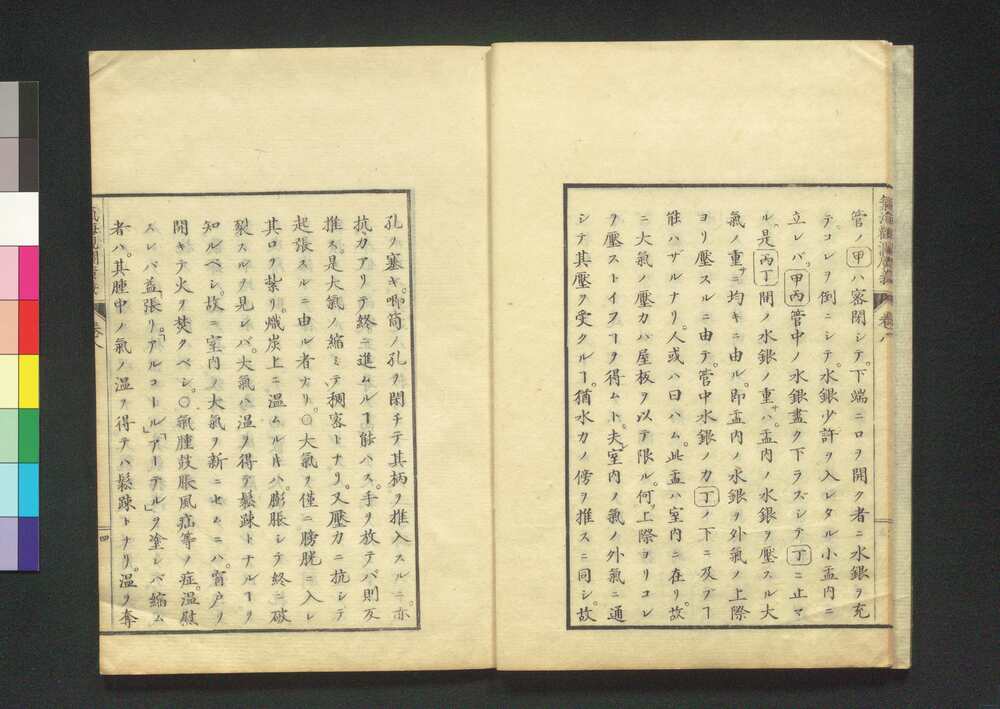 管ノ甲ハ密閉シテ。下端ニ口ヲ開ク者ニ水銀ヲ充
テコレヲ倒ニシテ水銀少許ヲ入レタル小盂内ニ
立レバ。甲丙管中ノ水銀盡ク下ラズシテ丁ニ止マ
ル。是丙丁間ノ水銀ノ重サハ。盂内ノ水銀ヲ壓スル大
氣ノ重サニ均キニ由ル。即盂内ノ水銀ヲ外氣ノ上際
ヨリ壓スルニ由テ。管中水銀ノ力丁ノ下ニ及ブヿ
能ハザルナリ。人或ハ曰ハム。此盂ハ室内ニ在リ。故
ニ大氣ノ壓力ハ屋板ヲ以テ限ル。何ゾ上際ヨリコレ
ヲ壓ストイフヿヲ得ムト。夫レ室内ノ氣ノ外氣ニ通
シテ其壓ヲ受クルヿ。猶水力ノ傍ヲ推スニ同シ。故
氣海觀瀾廣義 卷八
孔ノ塞キ。喞筒ノ孔ヲ閉チテ其柄ヲ推入スルニ。亦
抗力アリテ終ニ進ムルヿ能ハス。手ヲ放テバ則反
推ス。是大氣ノ縮ミテ稠密トナリ。又壓力ニ抗シテ
起張スルニ由ル者ナリ。○大氣ヲ僅ニ膀胱ニ入レ
其口ヲ紮リ。熾炭上ニ温ムルキハ。膨脹シテ終ニ破
裂スルヲ見シバ。大氣ハ温ヲ得テ鬆疎トナルヿヲ
知ルベシ。故ニ室内ノ大氣ヲ新ニセムニハ。窗戸ヲ
開キテ火ヲ焚クベシ。○氣腫鼓脹風疝等ノ症。温慰
スレバ益張リ。「アルコール」「アーテル」ヲ塗レバ縮ム
者ハ。其腫中ノ氣ノ温ヲ得テハ鬆疎トナリ。温ヲ奪
氣海觀瀾廣義 卷八
四